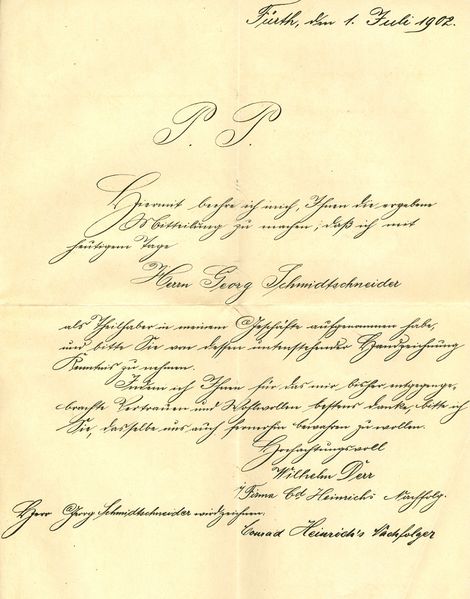 Fürth, den 1. Juli 1902.
P. P.
Hiermit beehre ich mich, Ihnen die ergebene
Mitteilung zu machen, daß ich mit
heutigem Tage
Herrn Georg Schmidtschneider
als Theilhaber in meinem Geschäfte aufgenommen habe,
und bitte Sie von dessen untenstehender Handzeichnung
Kenntnis zu nehmen.
Indem ich Ihnen für das mir bisher entgegenge-
brachte Vertrauen und Wohlwollen bestens danke, bitte ich
Sie, dasselbe uns auch fernerhin bewahren zu wollen.
Hochachtungsvoll
Wilhelm Derr
i/Firma Cd. Heinrich's Nachfolg.
Herr Georg Schmidtschneider wird zeichnen:
Conrad Heinrich's Nachfolger